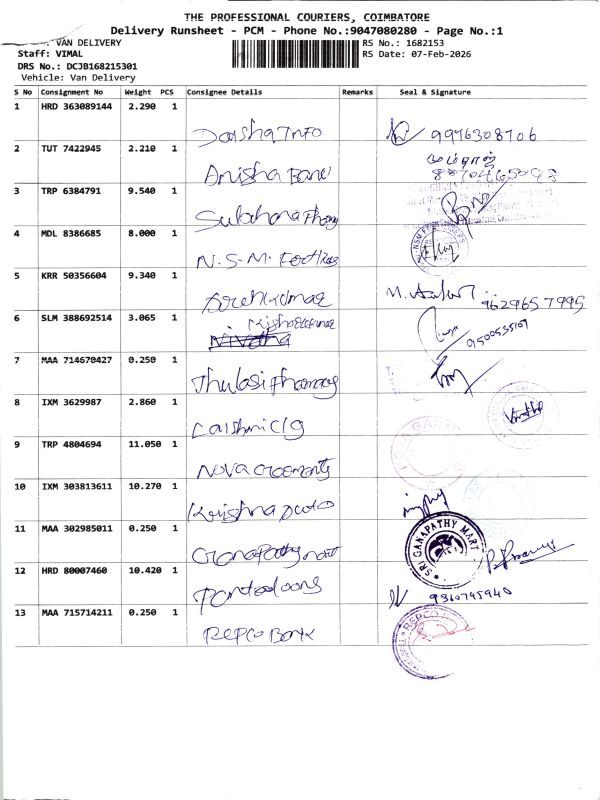 THE PROFESSIONAL COURIERS, COIMBATORE
Delivery Runsheet - PCM - Phone No.:9047080280 - Page No.:1
VAN DELIVERY
Staff: VIMAL
DRS No.: DCJB168215301
Vehicle: Van Delivery
RS No.: 1682153
RS Date: 07-Feb-2026
S No Consignment No Weight PCS Consignee Details Remarks Seal & Signature
1 HRD 363089144 2.290 1
Info 9976308706
2 TUT 7422945 2.210 1
Anisha
3 TRP 6384791 9.540 1
4 MDL 8386685 8.000 1
N.S.M.
5 KRR 50356604 9.340 1
M. 9629657995
6 SLM 388692514 3.065 1
Nivetha
9500535109
7 MAA 714670427 0.250 1
Thulasi Pharmacy
8 IXM 3629987 2.860 1
9 TRP 4804694 11.050 1
Nova
10 IXM 303813611 10.270 1
Krishna
11 MAA 302985011 0.250 1
Ganapathy mart
SRI GANAPATHY MART
12 HRD 80007460 10.420 1
9360795940
13 MAA 715714211 0.250 1
REPCO Bank
REPCO